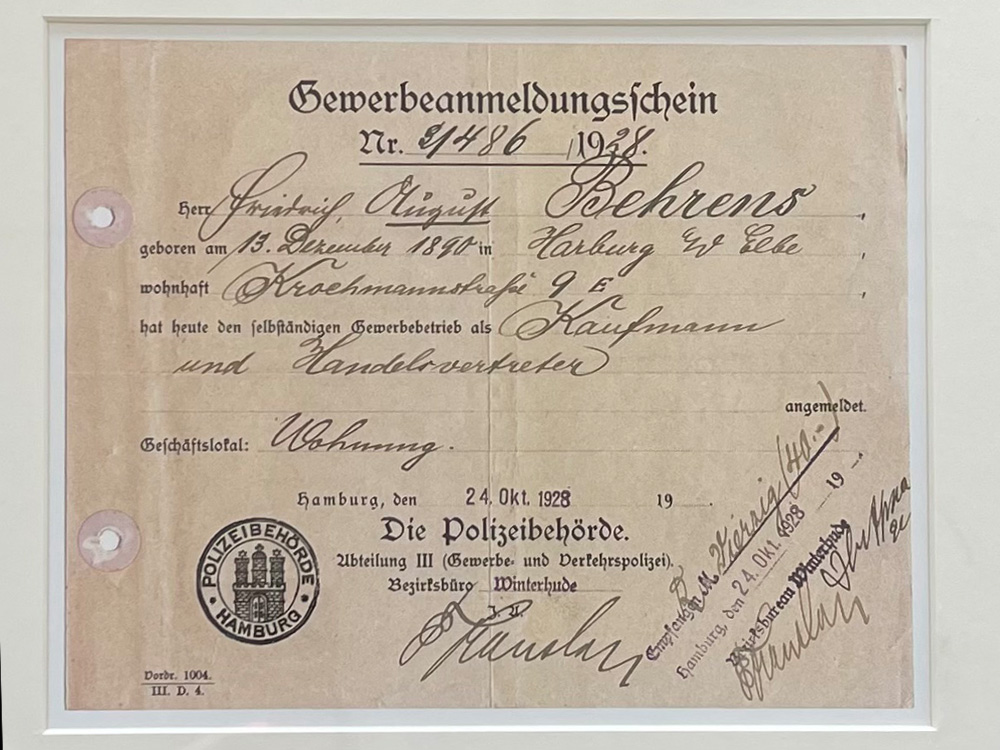 Gewerbeanmeldungsschein
Nr. 31486 /1928.
Herr Friedrich, August Behrens,
geboren am 13. Dezember 1890 in Harburg Elbe,
wohnhaft Krochmannstraße 9 E,
hat heute den selbständigen Gewerbebetrieb als Kaufmann
und Handelsvertreter
angemeldet.
Geschäftslokal: Wohnung.
Hamburg, den 24. Okt. 1928 19
Die Polizeibehörde.
Abteilung III (Gewerbe- und Verkehrspolizei).
Bezirksbüro Winterhude
J. A.
POLIZEIBEHÖRDE
HAMBURG
Vordr. 1004.
III. D. 4.
Empfangen M Vierzig (40.-)
Hamburg, den 24. Okt. 1928 19
Bezirksbureau Winterhude